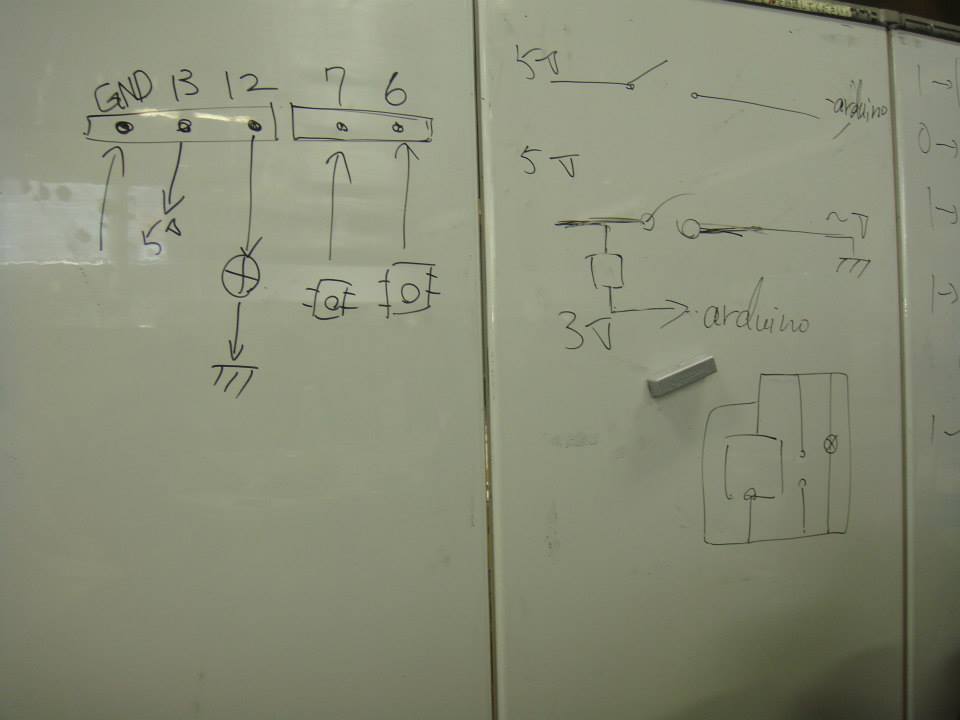 GND 13 12 7 6
5V
5V
arduino
5V
3V
arduino
1→
0→
1→
1→
1